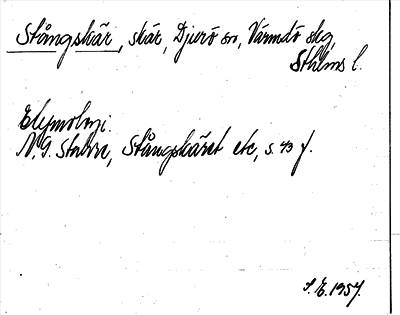 Stångskär, skär, Djurö sn, Värmdö skg,
Sthlms l.
Etymologi:
N. G. Stahre, Stångskäret etc, s. 43 f.
S. E. 1957.